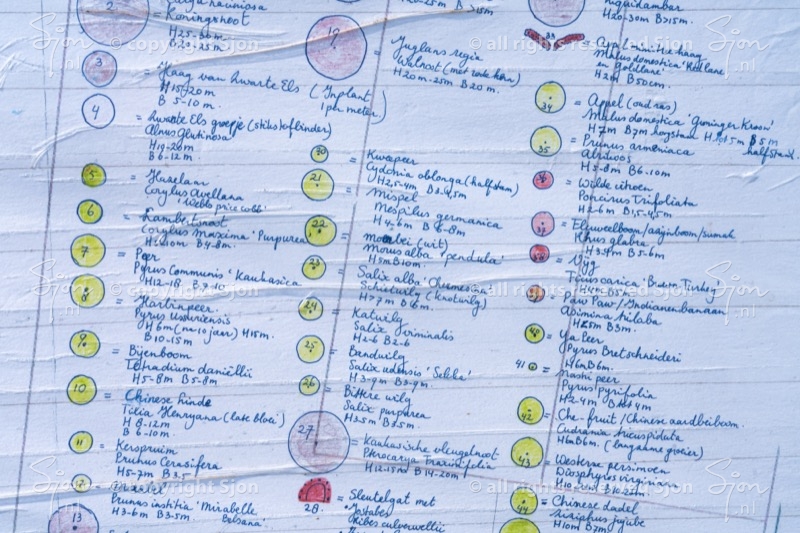 2
Koningsnoot
H25-30m
B20-25m
3
= Haag van Zwarte Els (Inplant
H15-20m 1 per meter)
B 5-10 m.
4
= Zwarte Els groepje (stikstofbinder)
Alnus Glutinosa
H10-20m
B6-12m.
5
= Hazelaar
Corylus Avellana
'Webbs price cobb'
6
= Lambertsnoot
Corylus Maxima 'Purpurea'
B4-8m.
7
= Peer
Pyrus Communis 'Kaukasica'
H12-18. B7-10
8
= Hartinpeer.
Pyrus Ussuriensis
H6m (na 10 jaar) H15m.
B10-15m
9
= Bijenboom
Tetradium daniëllii
H5-8m B5-8m
10
= Chinese linde
Tilia Henryana (late bloei)
H8-12m
B6-10m.
11
= Kerspruim
Prunus Cerasifera
H5-7m B3-5
12
Prunus insititia 'Mirabelle
H3-6m B3-5m.
13
19
= Juglans regia
Walnoot (met rode kern)
H20m-25m B20m.
20
= Kweepeer
Cydonia oblonga (halfstam)
H2,5-4m B3-4,5m
21
= Mispel
Mespilus germanica
H4-6m B4-8m
22
= moerbei (wit)
Morus alba 'pendula'
H5m B10m.
23
= Salix alba
Schietwilg (knotwilg)
H>7m B6m.
24
= Katwilg
Salix Viminalis
H2-6 B2-6
25
= Bandwilg
Salix udensis 'Sekka'
H3-9m B3-9m.
26
= Bittere wilg
Salix purpurea
H3,5m B3,5m.
27
= Kaukasische vleugelnoot
Pterocarya Fraxinifolia
H12-15m B14-20m
28.
= Sleutelgat met
Ribes culverwellii
Liquidambar
H20-30m B>15m.
33
= Appel minitree haag
Malus domestica 'Redlane'
en 'Goldlane'
H2m B50cm.
34
= Appel (oud ras)
Malus domestica 'Groninger Kroon'
H7m B7m hoogstam B5m
halfstam.
35
= Prunus armeniaca
Abrikoos
H5-8m B6-10m
36
= Wilde citroen
Poncirus Trifoliata
H2-6m B1,5-4,5m.
37
= Elzweelboom/azijnboom/sumak
Rhus glabra
H3-5m B5-6m
38
= Vijg
Ficus carica 'Brown Turkey'
H4m B5m
39
= Paw Paw/Indianenbanaan
Asimina triloba
H25m B3m.
40
= Ya Peer
Pyrus Bretschneideri
H6m B6m.
41
= Nashi peer
Pyrus pyrifolia
H2-4m B2-4m
42
= Che-fruit/Chinese aardbeiboom.
Cudrania tricuspidata
H6m B6m. (langzame groeier)
43
= Westerse persimoen
Diospyros virginiana
44
= Chinese dadel
Ziziphus jujube
H10m B7m
© copyright Sjon
© all rights reserved Sjon
Sjon.nl